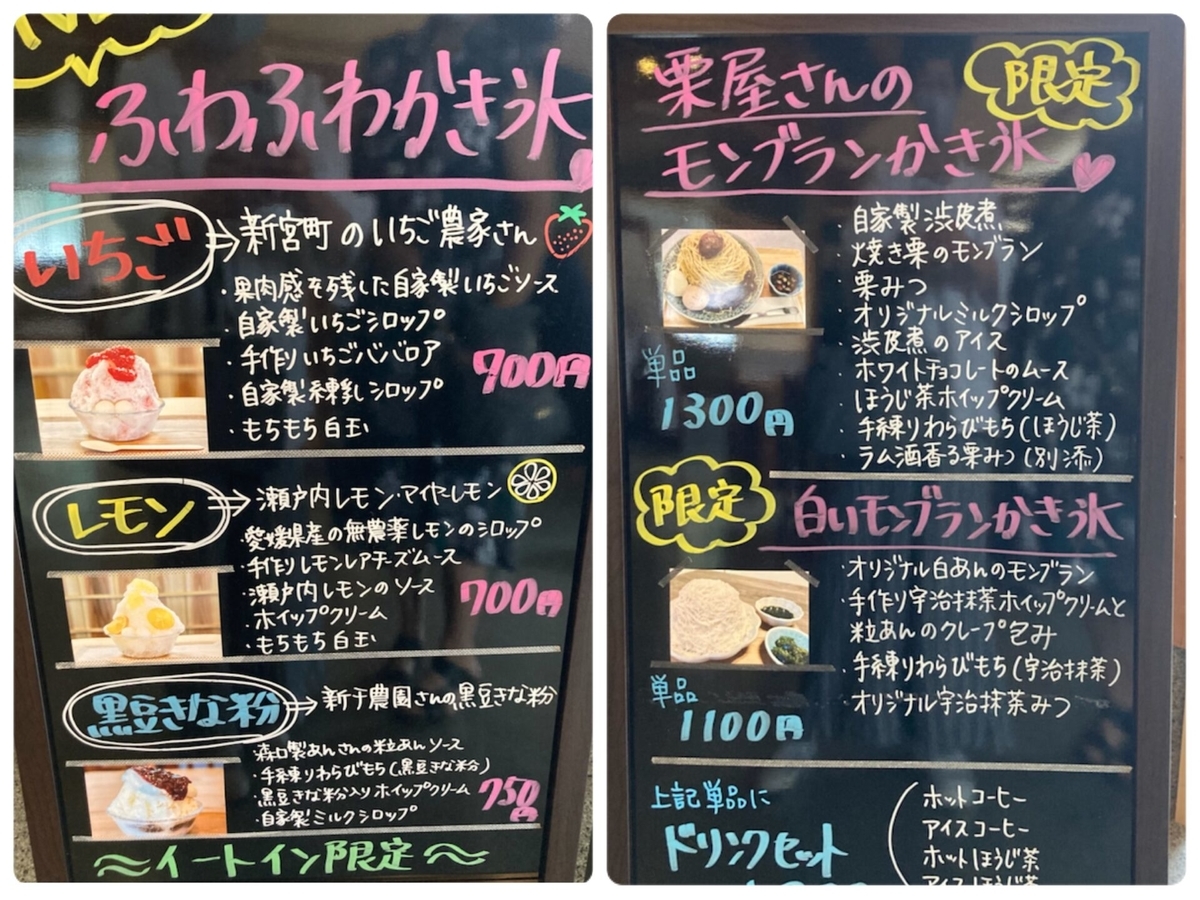 ふわふわかき氷
いちご
新宮町のいちご農家さん
・果肉感を残した自家製いちごソース
・自家製いちごシロップ
・手作りいちごババロア
・自家製練乳シロップ
・もちもち白玉
700円
レモン
瀬戸内レモン・マイヤーレモン
・愛媛県産の無農薬レモンのシロップ
・手作りレモンレアチーズムース
・瀬戸内レモンのソース
・ホイップクリーム
・もちもち白玉
700円
黒豆きな粉
新于農園さんの黒豆きな粉
・森口製あんさんの粒あんソース
・手練りわらびもち(黒豆きな粉)
・黒豆きな粉入りホイップクリーム
・自家製ミルクシロップ
750円
〜イートイン限定〜
栗屋さんの
限定
モンブランかき氷
・自家製渋皮煮
・焼き栗のモンブラン
・栗みつ
・オリジナルミルクシロップ
・渋皮煮のアイス
・ホワイトチョコレートのムース
・ほうじ茶ホイップクリーム
・手練りわらびもち(ほうじ茶)
・ラム酒香る栗みつ(別添)
単品
1300円
限定
白いモンブランかき氷
・オリジナル白あんのモンブラン
・手作り宇治抹茶ホイップクリームと
粒あんのクレープ包み
・手練りわらびもち(宇治抹茶)
・オリジナル宇治抹茶みつ
単品
1100円
上記単品に
ドリンクセット
ホットコーヒー
アイスコーヒー
ホットほうじ茶
アイスほうじ茶